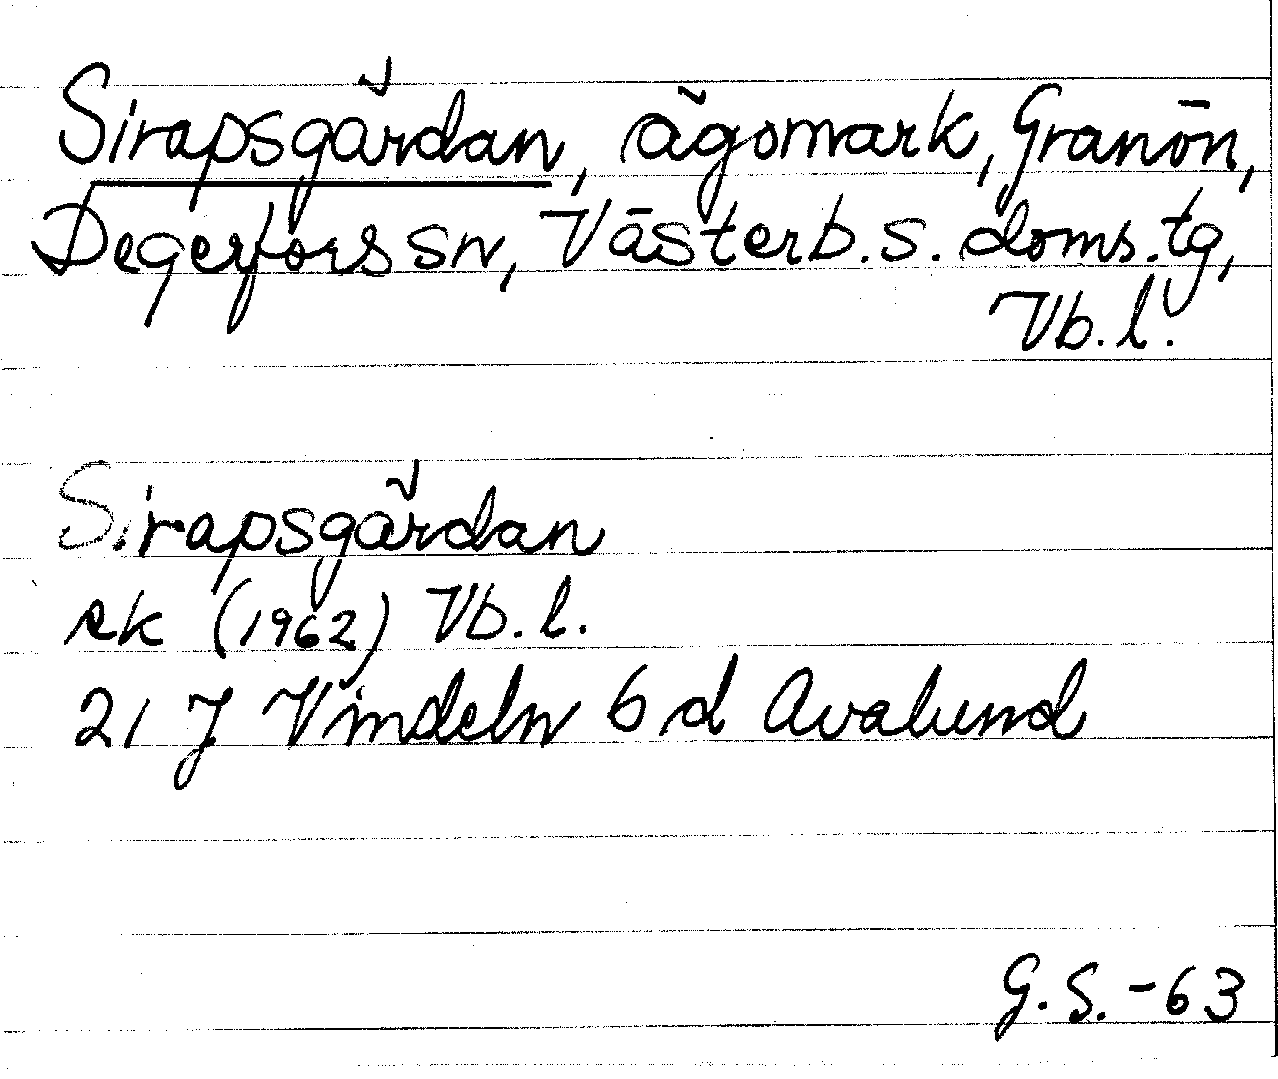 Sirapsgårdan, ägomark, Granön,
Degerfors sn, Västerb. s. doms. tg,
Vb. l.
Sirapsgårdan
ek (1962) Vb. l.
21 J Vindeln 6 d Avalund
G. S. -63